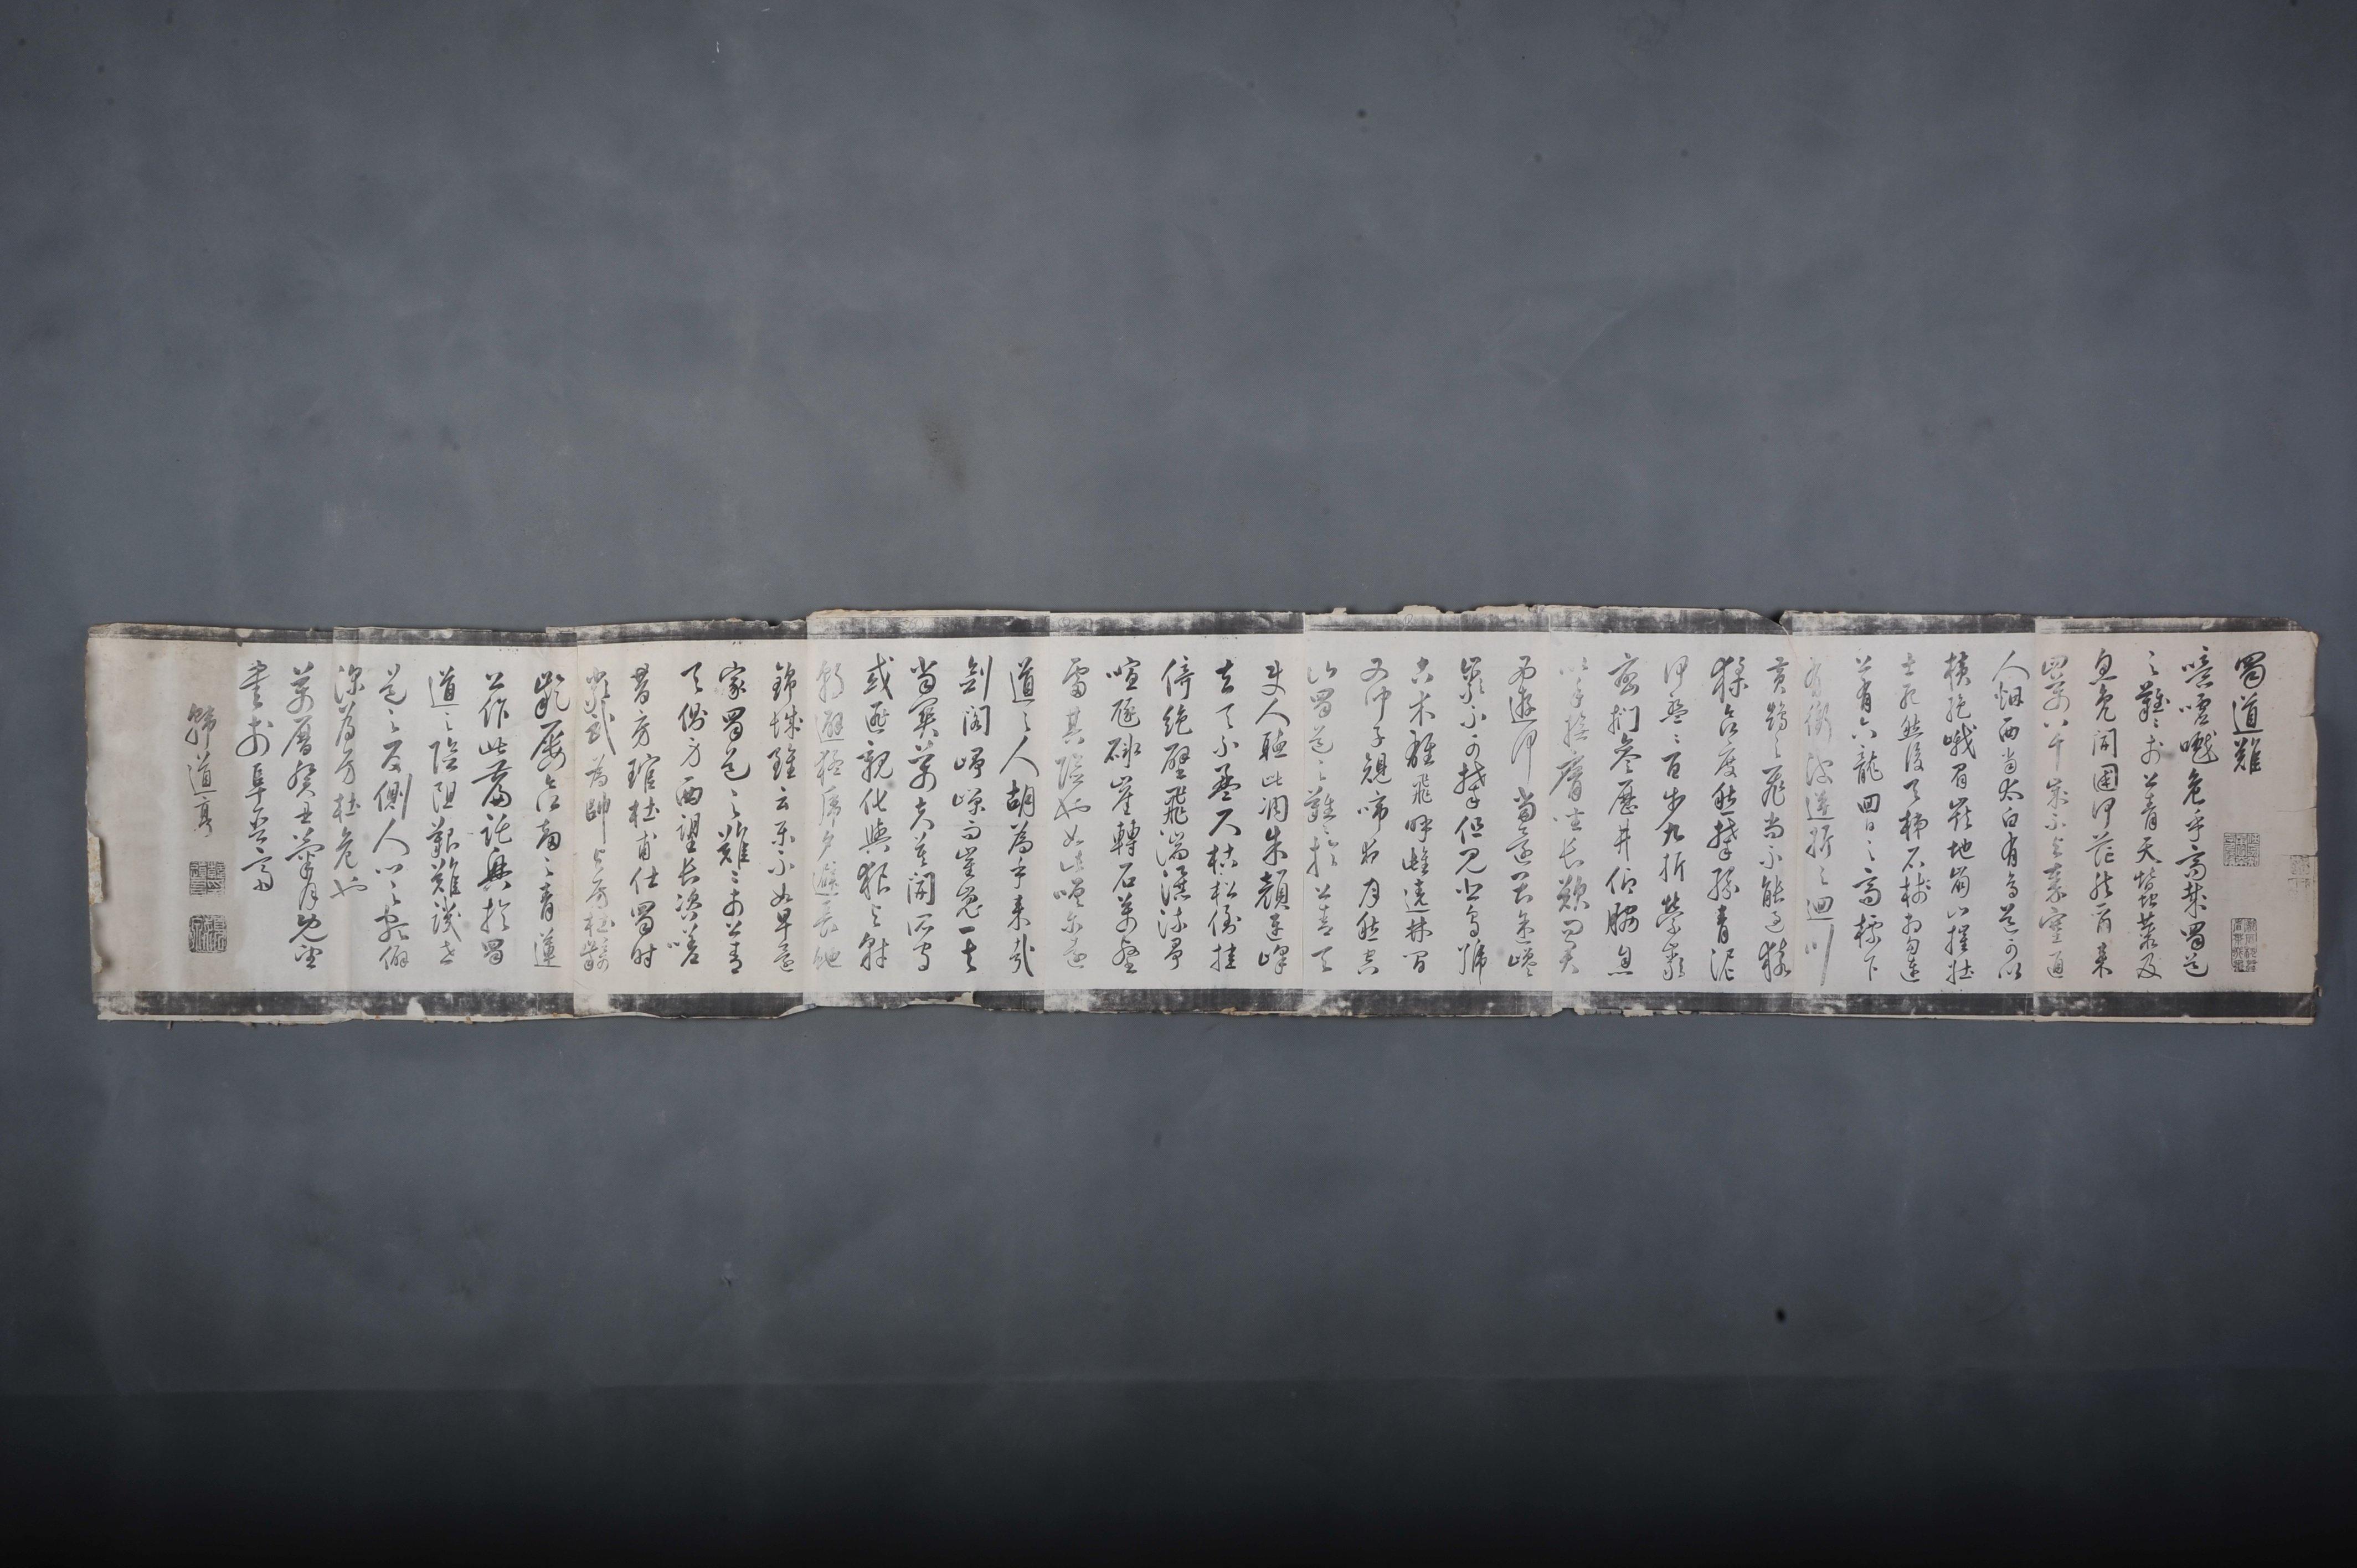 蜀道難
噫吁嚱危乎高哉蜀道
之難難於上青天蠶叢及
魚鳧開國何茫然爾來
四萬八千歲不與秦塞通
人烟西當太白有鳥道可以
橫絕峨眉巔地崩山摧壯
士死然後天梯石棧相勾連
上有六龍回日之高標下
有衝波逆折之迴川
黃鶴之飛尚不能過猿
猱欲度愁攀緣青泥
何盤盤百步九折縈巖
巒捫參歷井仰脅息
以手撫膺坐長歎問君
西遊何當還畏途巉
巖不可攀但見悲鳥號
古木雄飛呼雌遶林間
又聞子規啼夜月愁空
山蜀道之難難於上青天
使人聽此凋朱顏連峰
去天不盈尺枯松倒挂
倚絕壁飛湍瀑流爭
喧豗砯崖轉石萬壑
雷其險也如此嗟爾遠
道之人胡為乎來哉
劍閣崢嶸而崔嵬一夫
當關萬夫莫開所守
或匪親化與狼與豺
朝避猛虎夕避長蛇
錦城雖云樂不如早還
家蜀道之難難於上青
天側身西望長咨嗟
昔房琯杜甫仕蜀時
嚴武為帥與房杜
屢欲青蓮
公作此篇託興於蜀
道之險阻艱難譏世
道之反側人心之
深為房杜危也
萬曆癸丑月
書於阜
韓道亨